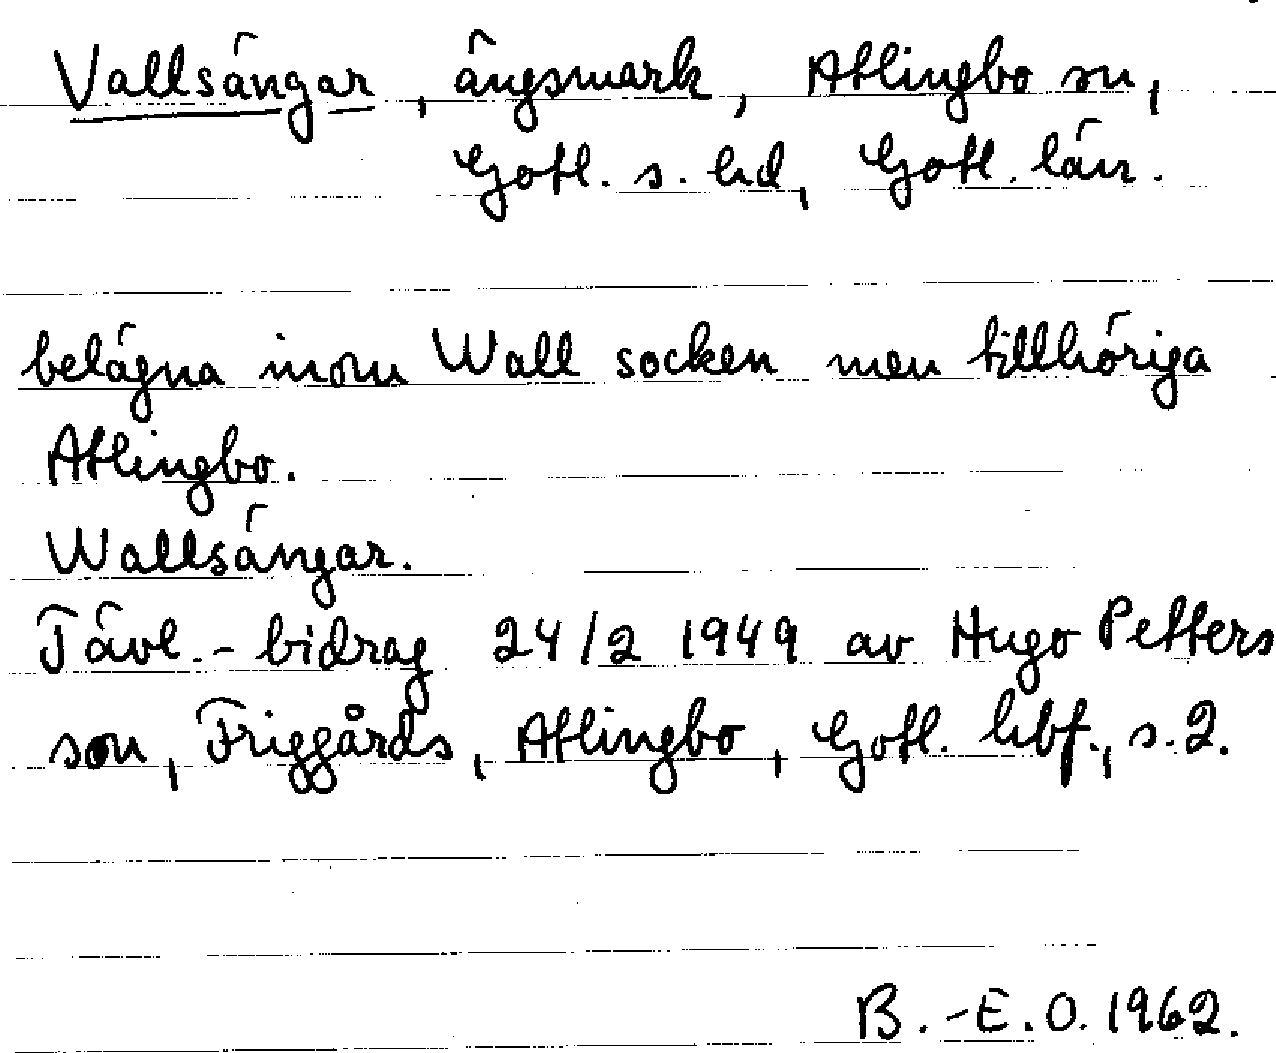 Vallsängar, ängsmark, Atlingbo sn,
Gotl. s. hd, Gotl. län.
belägna inom Wall socken men tillhöriga
Atlingbo.
Wallsängar.
Tävl.-bidrag 24/2 1949 av Hugo Petters
son, Friggårds, Atlingbo, Gotl. hbf., s. 2.
B.-E. O. 1962.